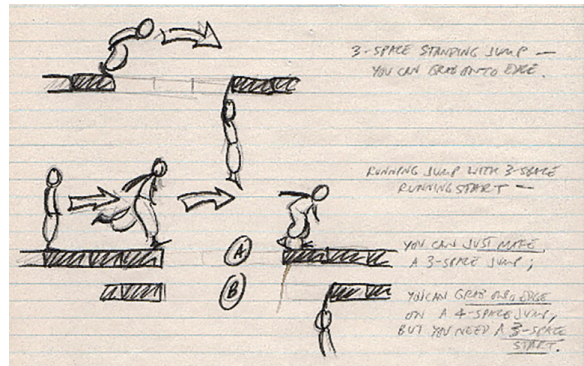 3-SPACE STANDING JUMP —
YOU CAN GRAB ONTO EDGE.
RUNNING JUMP WITH 3-SPACE
RUNNING START —
A
YOU CAN JUST MAKE
A 3-SPACE JUMP;
B
YOU CAN GRAB ONTO EDGE
ON A 4-SPACE JUMP,
BUT YOU NEED A 3-SPACE
START.